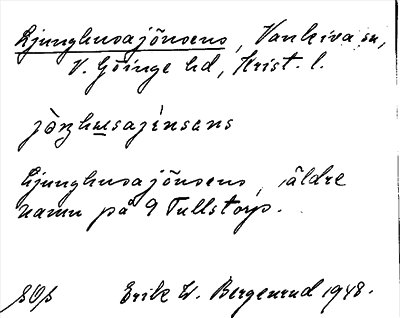 Ljunghusajönsens, Vankiva sn,
V. Göinge hd, Krist. l.
Ljunghusajönsens, äldre
namn på 9 Tullstorp.
Erik W. Bergenrud 1948.